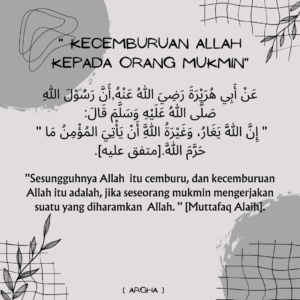 " KECEMBURUAN ALLAH
KEPADA ORANG MUKMIN"
عَنْ أَبِي هُرَيْرَةَ رَضِيَ اللهُ عَنْهُ,أَنَّ رَسُوْلَ اللهِ
صَلَّى اللهُ عَلَيْهِ وَسَلَّمَ قَالَ:
" إِنَّ اللهَ يَغَارُ، وَغَيْرَةُ اللهِ أَنْ يَأْتِيَ الْمُؤْمِنُ مَا
حَرَّمَ اللهُ". [متفق عليه].
"Sesungguhnya Allah itu cemburu, dan kecemburuan
Allah itu adalah, jika seseorang mukmin mengerjakan
suatu yang diharamkan Allah. " [Muttafaq Alaih].
[ ARGHA ]